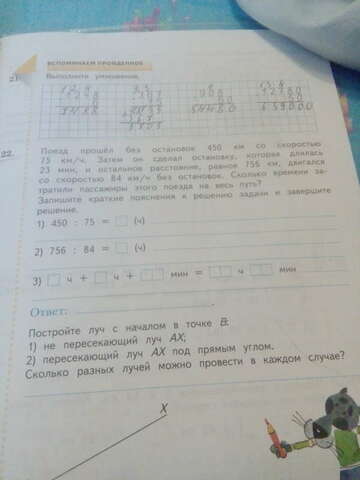 ВСПОМИНАЕМ ПРОЙДЕННОЕ
21.
Выполните умножение.
22.
Поезд прошёл без остановок 450 км со скоростью
75 км/ч. Затем он сделал остановку, которая длилась
23 мин, и остальное расстояние, равное 756 км, двигался
со скоростью 84 км/ч без остановок. Сколько времени за-
тратили пассажиры этого поезда на весь путь?
Запишите краткие пояснения к решению задачи и завершите
решение.
1) 450 : 75 = (ч)
2) 756 : 84 = (ч)
3) ч + ч + мин = ч мин
Ответ:
Постройте луч с началом в точке B:
1) не пересекающий луч AX;
2) пересекающий луч AX под прямым углом.
Сколько разных лучей можно провести в каждом случае?
X